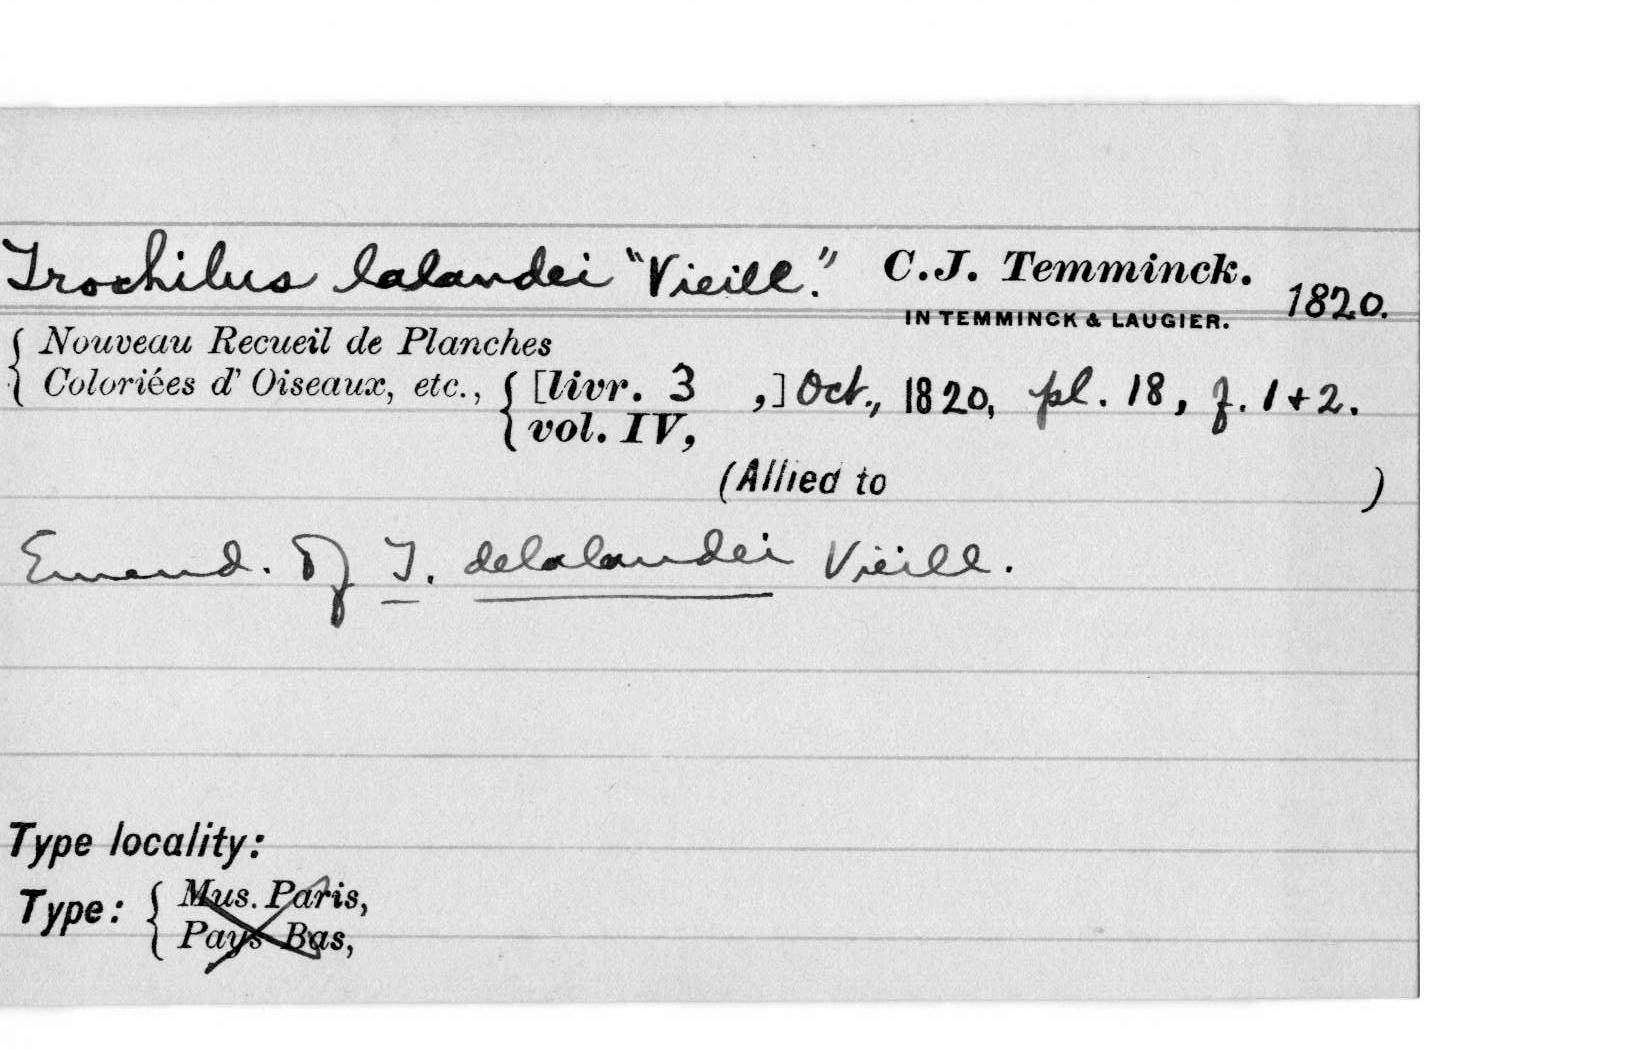 Trochilus lalandei "Vieill." C.J. Temminck. 1820.
IN TEMMINCK & LAUGIER.
Nouveau Recueil de Planches
Coloriées d' Oiseaux, etc., [livr. 3 ,] Oct., 1820, pl. 18, f. 1 + 2.
vol. IV,
(Allied to )
Emend. Of T. delalandei Vieill.
Type locality:
Type: Mus. Paris,
Pays Bas,